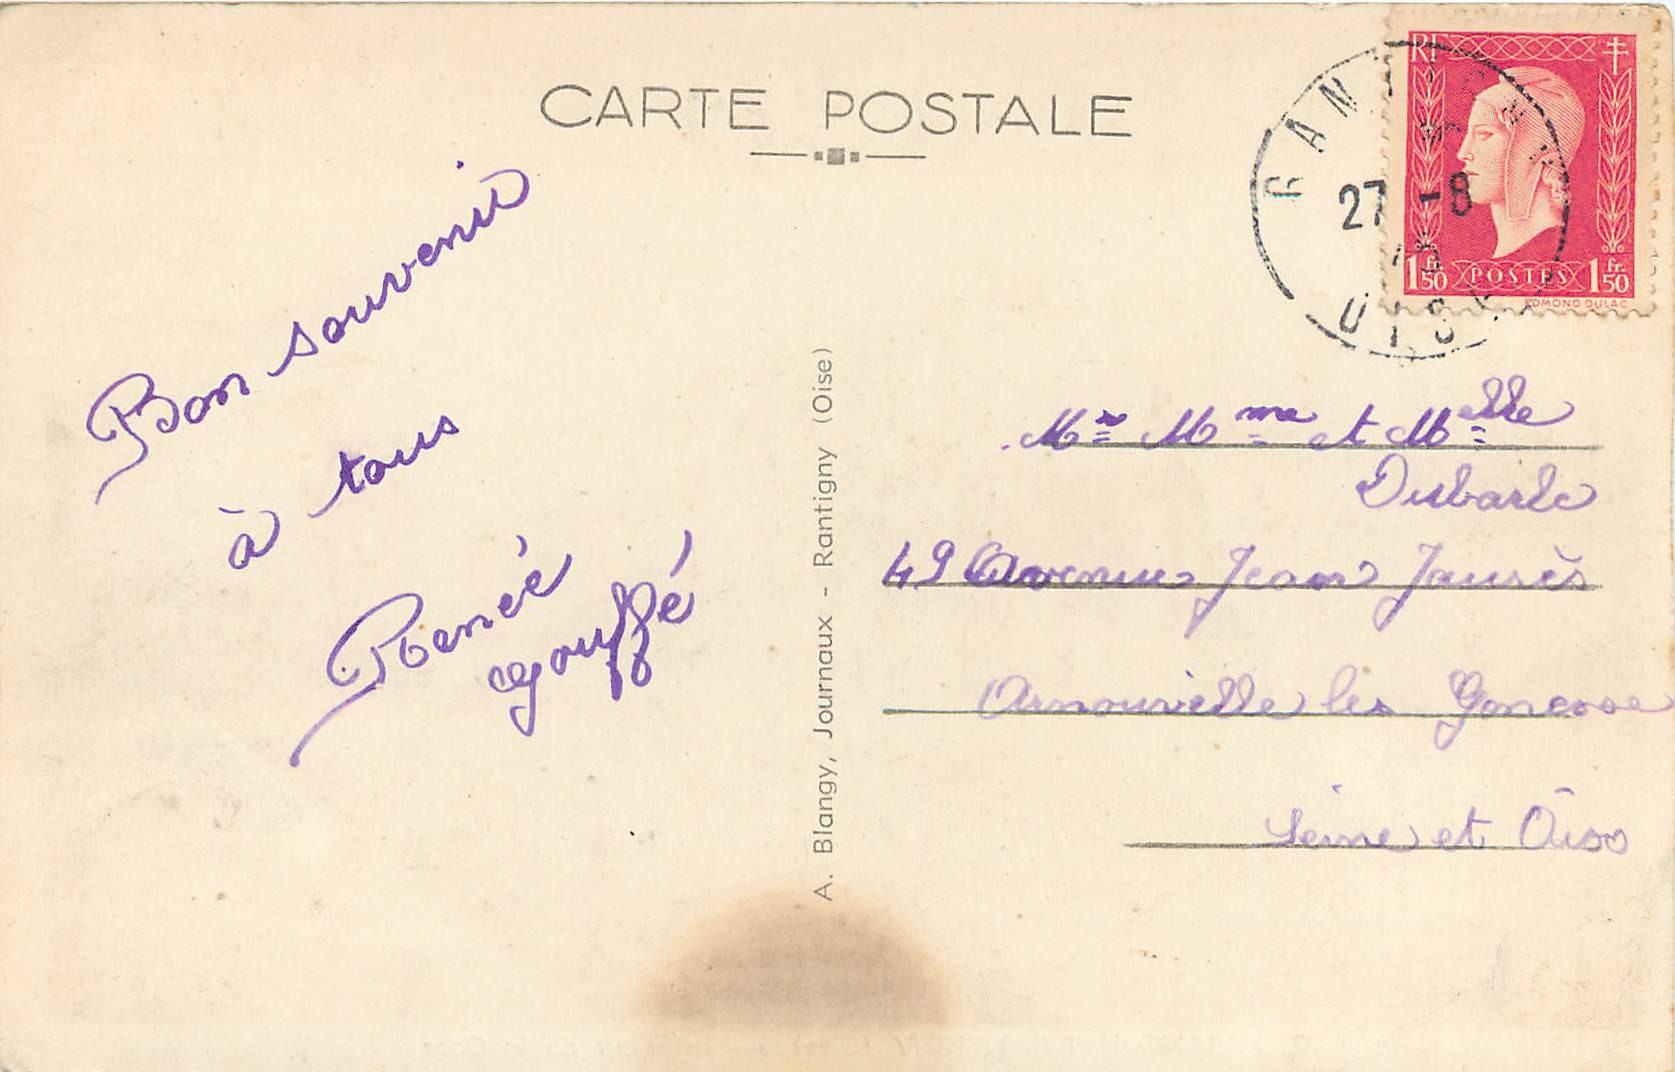 CARTE POSTALE
Bon souvenir
à tous
Renée
Gouffé
A. Blangy, Journaux - Rantigny (Oise)
RF
1 fr. 50 POSTES 1 fr. 50
EDMOND DULAC
RANTIGNY
27 -8
OISE
Mr Mme et Melle
49 Avenue Jean Jaurès
Arnouville les Gonesse
Seine et Oise